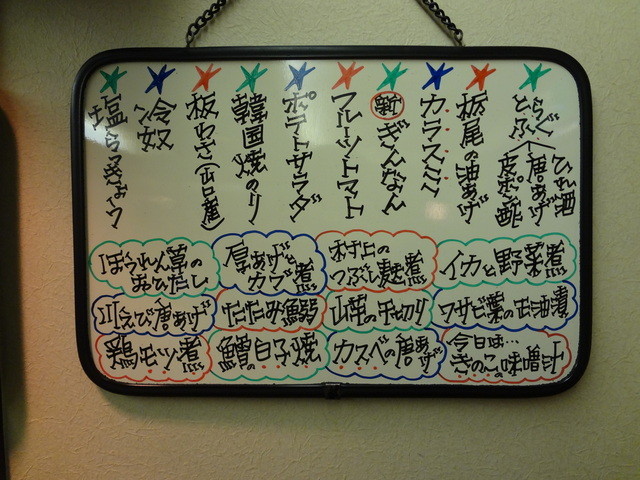 とらふぐ
ひれ酒
唐あげ
皮ポン酢
栃尾の油あげ
カラスミ
新ぎんなん
フルーツトマト
ポテトサラダ
韓国焼のり
板わさ(山口産)
冷奴
塩らっきょう
イカと野菜煮
村上のつぶし麩煮
厚あげとカブ煮
ほうれん草のおひたし
ワサビ葉の正油漬
山芋の千切り
たたみ鰯
川えび唐あげ
今日は…
きのこの味噌汁
カスベの唐あげ
鱈の白子焼
鶏モツ煮